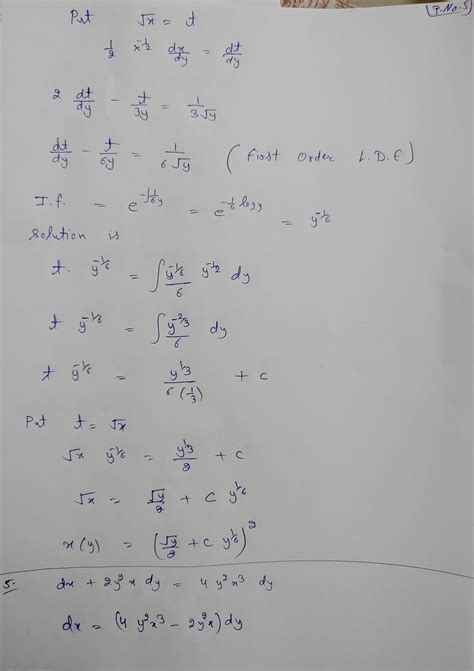 P.No-5
Put √x = t
1/2 x^-1/2 dx/dy = dt/dy
2 dt/dy - t/3y = 1/3√y
dt/dy - t/6y = 1/6√y (First Order L.D.E)
I.f. = e^-∫1/6y = e^-1/6 logy = y^-1/6
Solution is
t. y^-1/6 = ∫ y^-1/6/6 y^-1/2 dy
t y^-1/6 = ∫ y^-2/3/6 dy
t y^-1/6 = y^1/3/6(-1/3) + c
Put t = √x
√x y^-1/6 = y^1/3/2 + c
√x = √y/2 + c y^1/6
x(y) = (√y/2 + c y^1/6)^2
5. dx + 2y^2 x dy = 4 y^2 x^3 dy
dx = (4 y^2 x^3 - 2y^2 x) dy